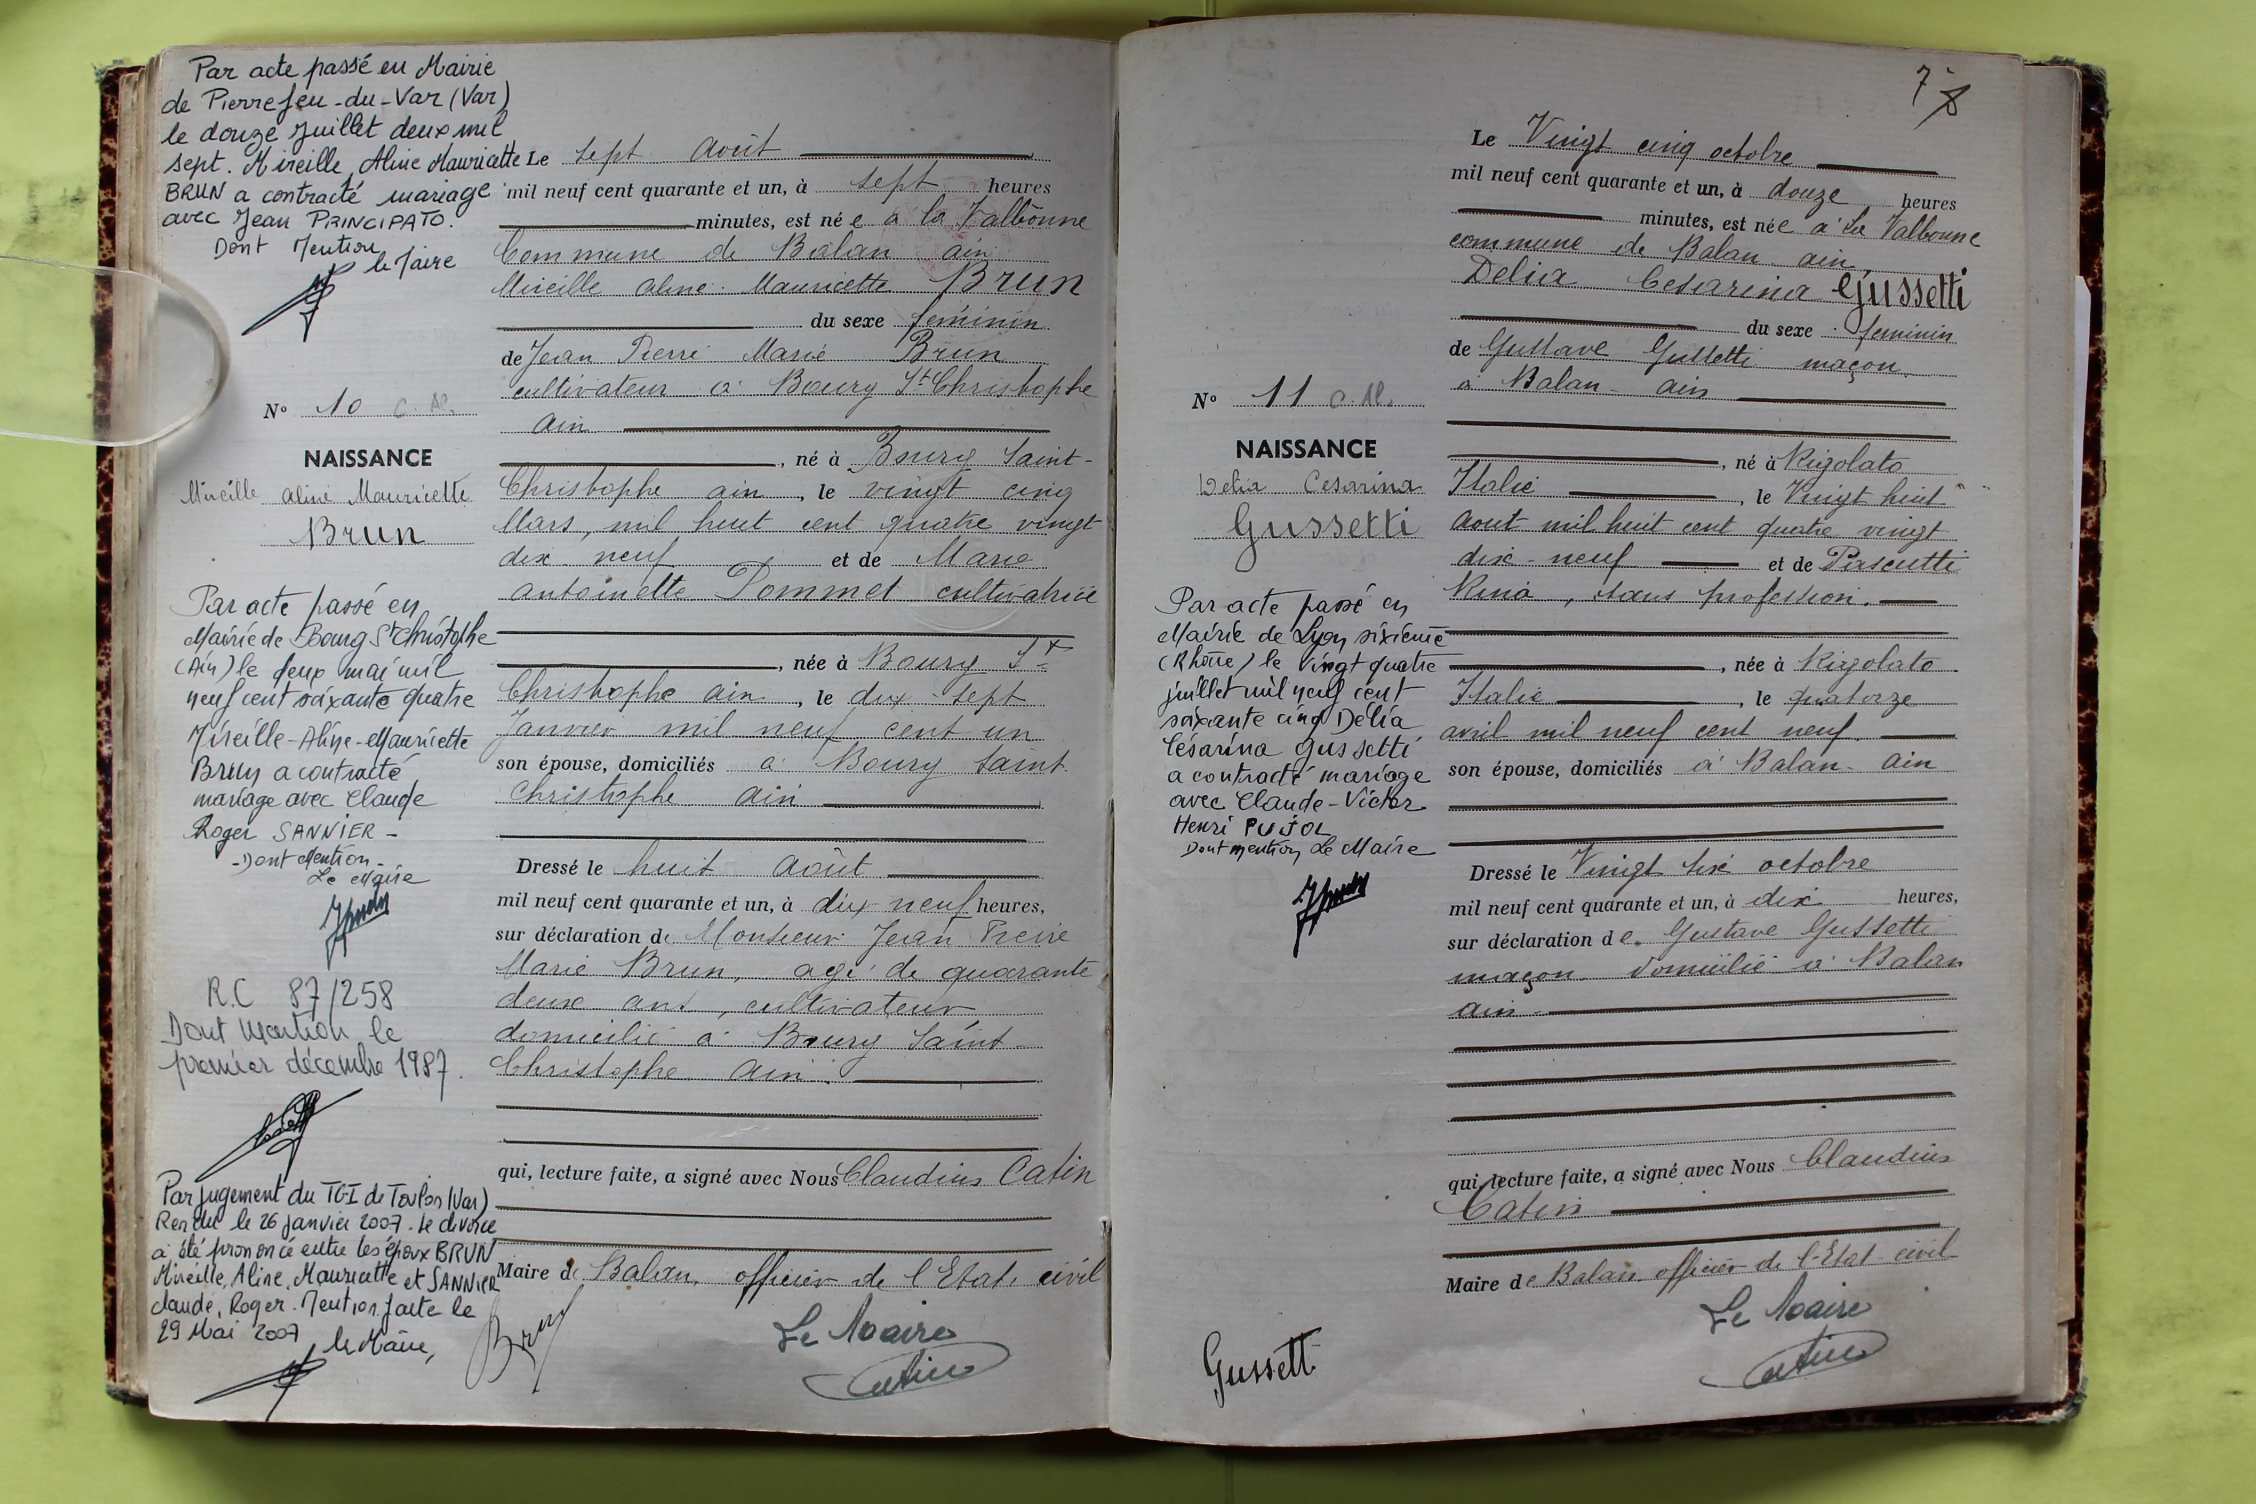 Par acte passé en Mairie
de Pierrefeu-du-Var (Var)
le douze Juillet deux mil
sept. Mireille, Aline Mauricette
BRUN a contracté mariage
avec Jean PRINCIPATO.
Dont Mention
le Maire
N° 10
NAISSANCE
Mireille aline Mauricette
Brun
Par acte passé en
Mairie de Bourg St Christophe
(Ain) le deux mai mil
neuf cent soixante quatre
Mireille-Aline-Mauricette
Brun a contracté
mariage avec Claude
Roger SANNIER -
- Dont Mention -
Le Maire
R.C 87/258
Dont Mention le
premier décembre 1987.
Par jugement du TGI de Toulon (Var)
Rendu le 26 janvier 2007. Le divorce
a été prononcé entre les époux BRUN
Mireille, Aline, Mauricette et SANNIER
Claude, Roger. Mention faite le
29 Mai 2007
le Maire,
Le sept Août
mil neuf cent quarante et un, à sept heures
minutes, est née à la Valbonne
Commune de Balan ain
Mireille aline Mauricette Brun
du sexe féminin
de Jean Pierre Marie Brun
cultivateur à Bourg St Christophe
ain
, né à Bourg Saint-
Christophe ain, le vingt cinq
Mars, mil huit cent quatre vingt
dix neuf et de Marie
antoinette Pommet cultivatrice
, née à Bourg St
Christophe ain, le dix-sept
Janvier mil neuf cent un
son épouse, domiciliés à Bourg Saint
Christophe ain
Dressé le huit Août
mil neuf cent quarante et un, à dix neuf heures,
sur déclaration de Monsieur Jean Pierre
Marie Brun, agé de quarante
deux ans, cultivateur
domicilié à Bourg Saint-
Christophe ain.
qui, lecture faite, a signé avec Nous Claudius Catin
Maire de Balan, officier de l'Etat civil
Brun
Le Maire
Catin
7
8
N° 11
NAISSANCE
Delia Cesarina
Gussetti
Par acte passé en
Mairie de Lyon sixième
(Rhône) le vingt quatre
juillet mil neuf cent
soixante cinq Délia
Césarina Gussetti
a contracté mariage
avec Claude-Victor
Henri PUJOL
Dont mention Le Maire
Le Vingt cinq octobre
mil neuf cent quarante et un, à douze heures
minutes, est née à La Valbonne
commune de Balan ain
Delia Cesarina Gussetti
du sexe feminin
de Gustave Gussetti maçon
à Balan - ain
, né à Rigolato
Italie, le Vingt huit
aout mil huit cent quatre vingt
dix-neuf et de Pascutti
Rina, sans profession.
, née à Rigolato
Italie, le quatorze
avril mil neuf cent neuf.
son épouse, domiciliés à Balan - ain
Dressé le Vingt six octobre
mil neuf cent quarante et un, à dix heures,
sur déclaration de Gustave Gussetti
maçon domicilié à Balan
ain -
qui, lecture faite, a signé avec Nous Claudius
Catin
Maire de Balan officier de l'Etat civil
Gussetti
Le Maire
Catin